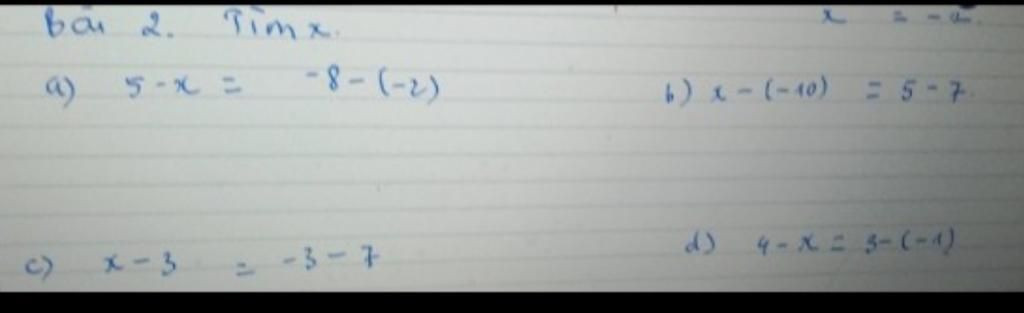 x = -2.
Bài 2. Tìm x.
a) 5 - x = -8 - (-2)
b) x - (-10) = 5 - 7
c) x - 3 = -3 - 7
d) 4 - x = 3 - (-1)